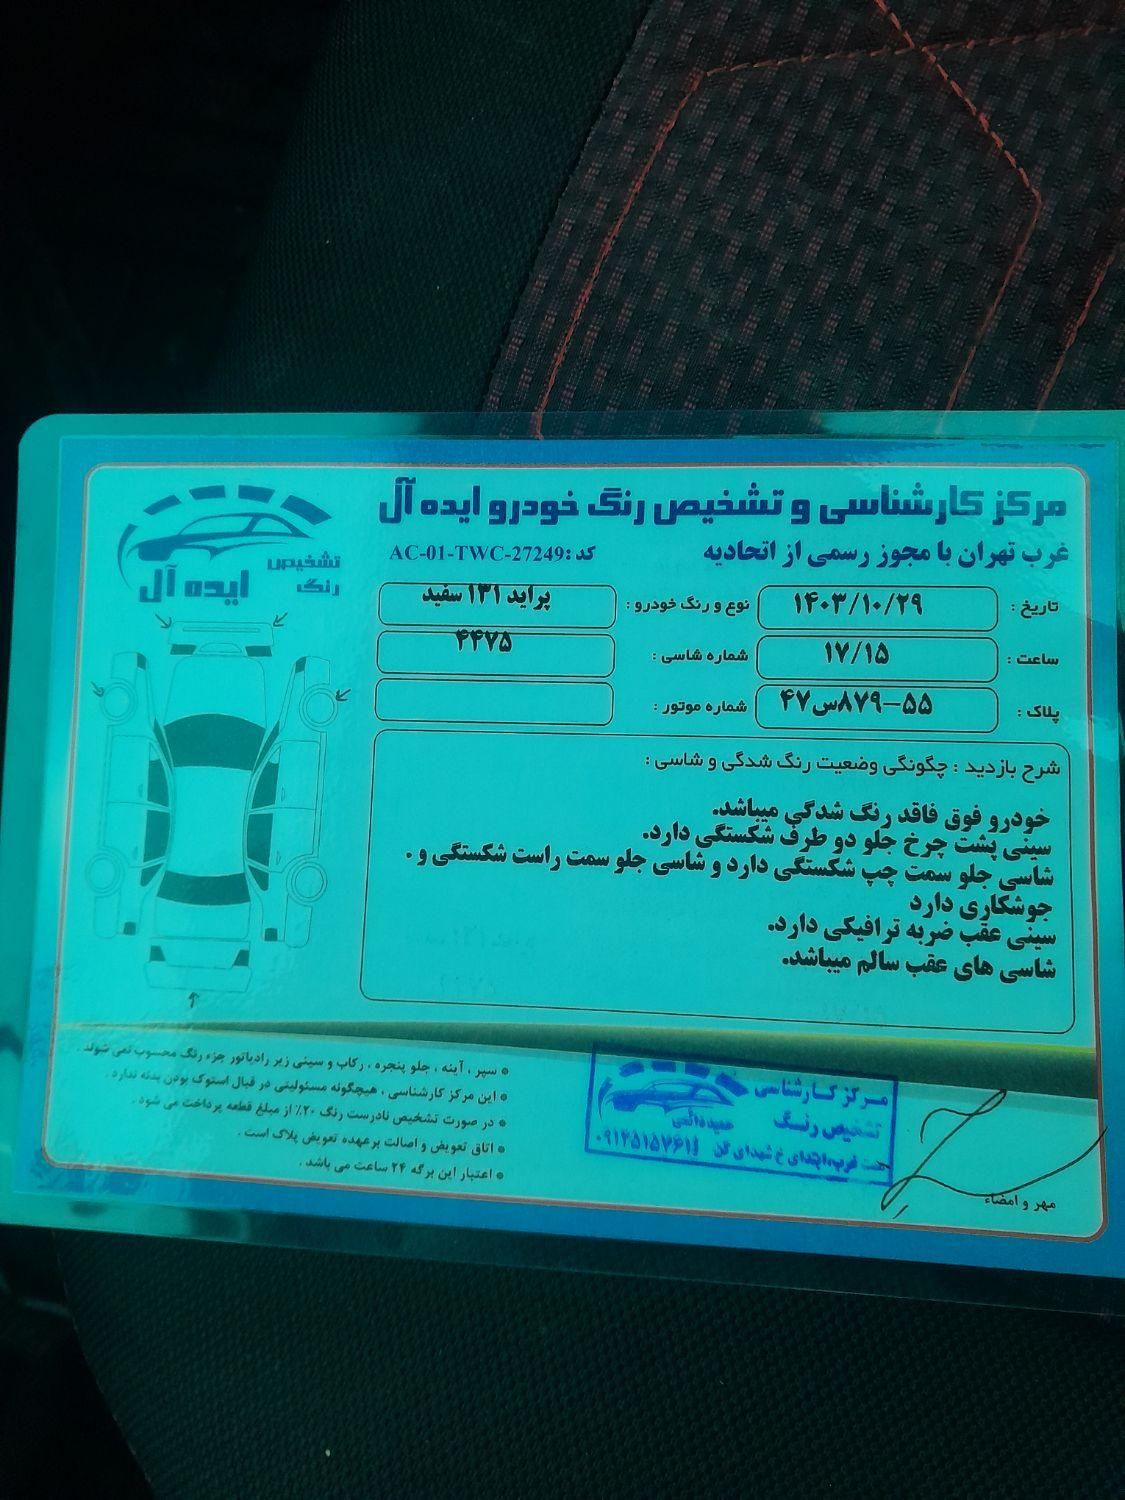 مرکز کارشناسی و تشخیص رنگ خودرو ایده آل
غرب تهران با مجوز رسمی از اتحادیه
کد: AC-01-TWC-27249
تشخیص رنگ
ایده آل
تاریخ : ۱۴۰۳/۱۰/۲۹
نوع و رنگ خودرو : پراید ۱۳۱ سفید
ساعت : ۱۷/۱۵
شماره شاسی : ۴۴۷۵
پلاک : ۵۵-۸۷۹س۴۷
شماره موتور :
شرح بازدید : چگونگی وضعیت رنگ شدگی و شاسی :
خودرو فوق فاقد رنگ شدگی میباشد.
سینی پشت چرخ جلو دو طرف شکستگی دارد.
شاسی جلو سمت چپ شکستگی دارد و شاسی جلو سمت راست شکستگی و .
جوشکاری دارد
سینی عقب ضربه ترافیکی دارد.
شاسی های عقب سالم میباشد.
* سپر ، آینه ، جلو پنجره ، رکاب و سینی زیر رادیاتور جزء رنگ محسوب نمی شوند .
* این مرکز کارشناسی ، هیچگونه مسئولیتی در قبال استوک بودن بدنه ندارد .
* در صورت تشخیص نادرست رنگ ۲۰٪ از مبلغ قطعه پرداخت می شود .
* اتاق تعویض و اصالت برعهده تعویض پلاک است .
* اعتبار این برگه ۲۴ ساعت می باشد .
مرکز کارشناسی
تشخیص رنگ
ابتدای خ شهدای کن
مهر و امضاء